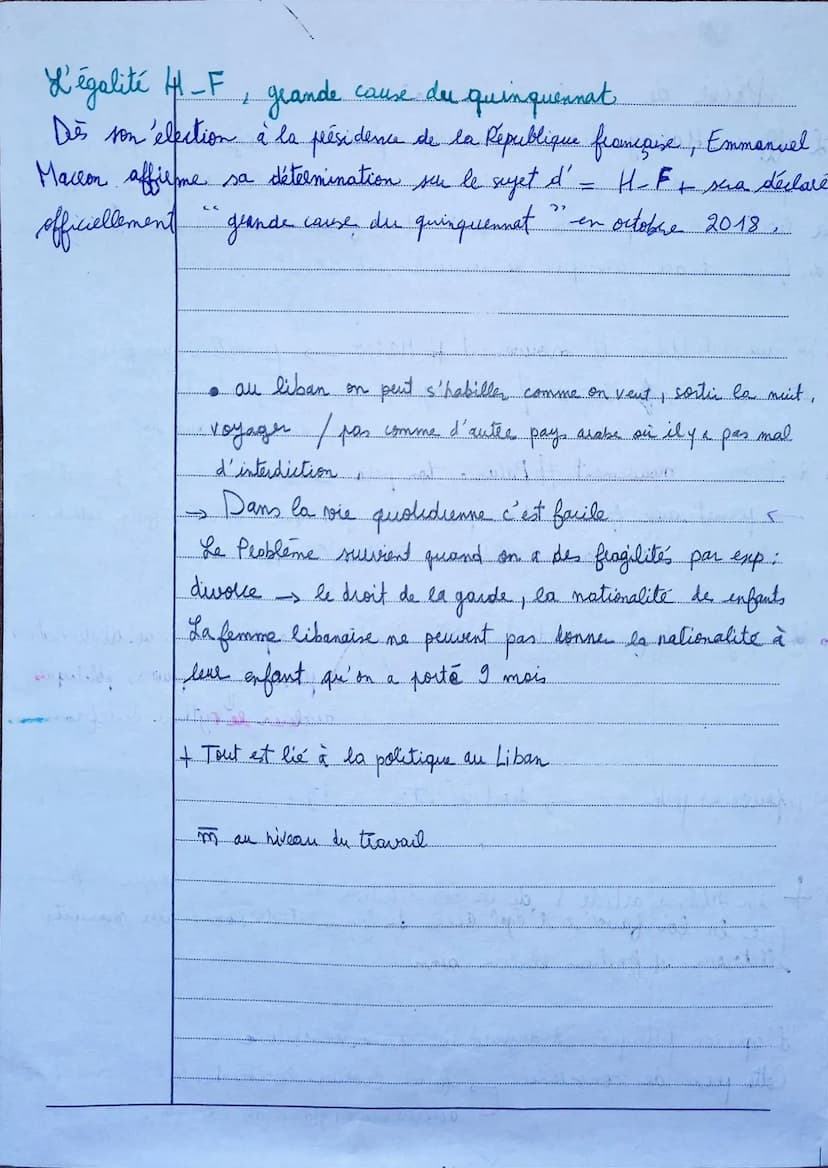 L'égalité H-F, grande cause du quinquennat
Dès son élection à la présidence de la République française, Emmanuel
Macron affirme sa détermination sur le sujet d' = H-F + sera déclaré
officiellement "grande cause du quinquennat" en octobre 2018.
• au liban on peut s'habiller comme on veut, sortir la nuit,
voyager / pas comme d'autre pays arabe où il y a pas mal
d'interdiction
→ Dans la vie quotidienne c'est facile
Le Problème survient quand on a des fragilités par exp :
divorce → le droit de la garde, la nationalité de enfants
La femme libanaise ne peuvent pas donner la nationalité à
leur enfant qu'on a porté 9 mois
+ Tout est lié à la politique au Liban
m̄ au niveau du travail